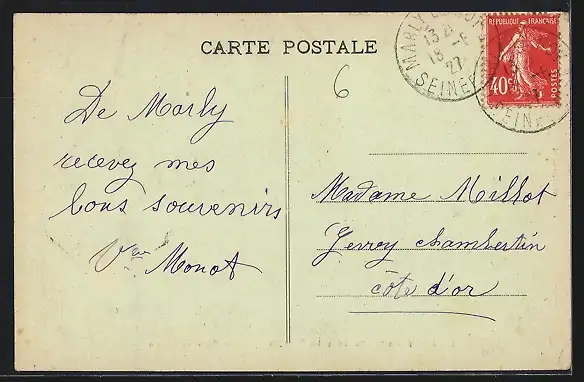 CARTE POSTALE
REPUBLIQUE FRANÇAISE
40c
POSTES
MARLY
13
18 - 8
27
SEINE
SEINE
6
De Marly
recevez mes
bons souvenirs
Vve Monot
Madame Millot
Gevrey chambertin
côte d'or